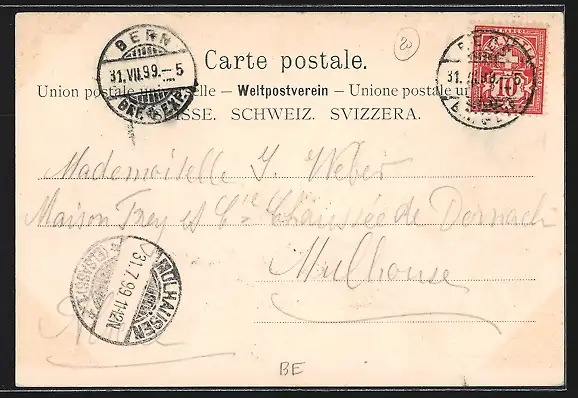 BERN
31.VII.99.–5
BRF. EXP.
20
31.VII.99.–5
10
Carte postale.
Union postale universelle — Weltpostverein — Unione postale un
SUISSE. SCHWEIZ. SVIZZERA.
Mademoiselle J. Weber
Maison Frey et Cie Chaussée de Dornach
Mulhouse
MÜLHAUSEN
31.7.99 11-12N
(ELSASS)
BE